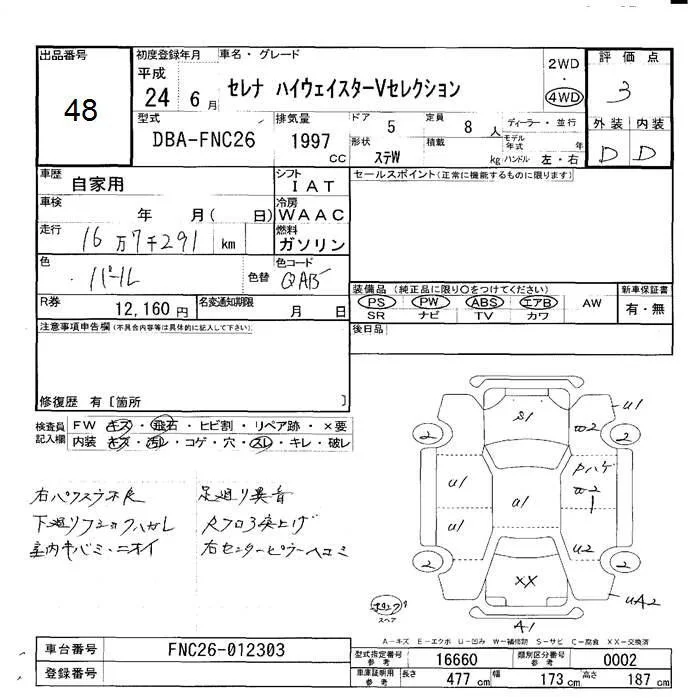 出品番号
48
初度登録年月
平成
24 6月
車名・グレード
セレナ ハイウェイスターVセレクション
2WD
・
4WD
評価点
3
型式
DBA-FNC26
排気量
1997
CC
ドア 5
定員 8 人
形状
ステW
積載
kg
ディーラー・並行
モデル年式 年
ハンドル 左・右
外装 内装
D D
車歴
自家用
シフト
IAT
セールスポイント(正常に機能するものに限ります)
車検
年 月( 日)
冷房
WAAC
走行
16万7千291 km
燃料
ガソリン
色
パール
色替
色コード
QAB
装備品 (純正品に限り○をつけてください)
PS PW ABS エアB AW
SR ナビ TV カワ
新車保証書
有・無
R券
12,160円
名変通知期限
月 日
後日品
注意事項申告欄(不具合内容等は具体的に記入して下さい)
修復歴 有[箇所 ]
検査員記入欄
FW キズ・飛石・ヒビ割・リペア跡・×要
内装 キズ・汚レ・コゲ・穴・スレ・キレ・破レ
右パワスラ不良 足廻り異音
下廻り
室内キバミ・ニオイ 右センターピラーヘコミ
S1
U1
W2
2
2
U1
Pハゲ
W2
1
U1
U1
U2
2
2
XX
UA2
A1
スペア
A-キズ E-エクボ U-凹み W-補修跡 S-サビ C-腐食 XX-交換済
車台番号
FNC26-012303
登録番号
型式指定番号
参考
16660
類別区分番号
参考
0002
車庫証明用
参考
長さ 477 cm
幅 173 cm
高さ 187 cm